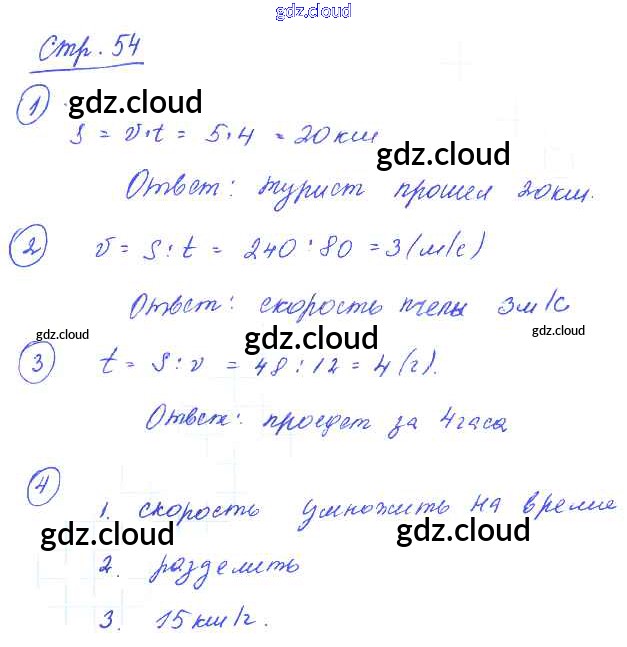 gdz.cloud
Стр. 54
gdz.cloud
1
S = v·t = 5·4 = 20км
gdz.cloud
Ответ: турист прошел 20км.
2 v = S : t = 240 : 80 = 3 (м/с)
Ответ: скорость пчелы 3м/с
gdz.cloud gdz.cloud gdz.cloud
3 t = S : v = 48 : 12 = 4 (г).
Ответ: проедет за 4часа
4
1. скорость умножить на время
gdz.cloud gdz.cloud
2. разделить
3. 15км/г.